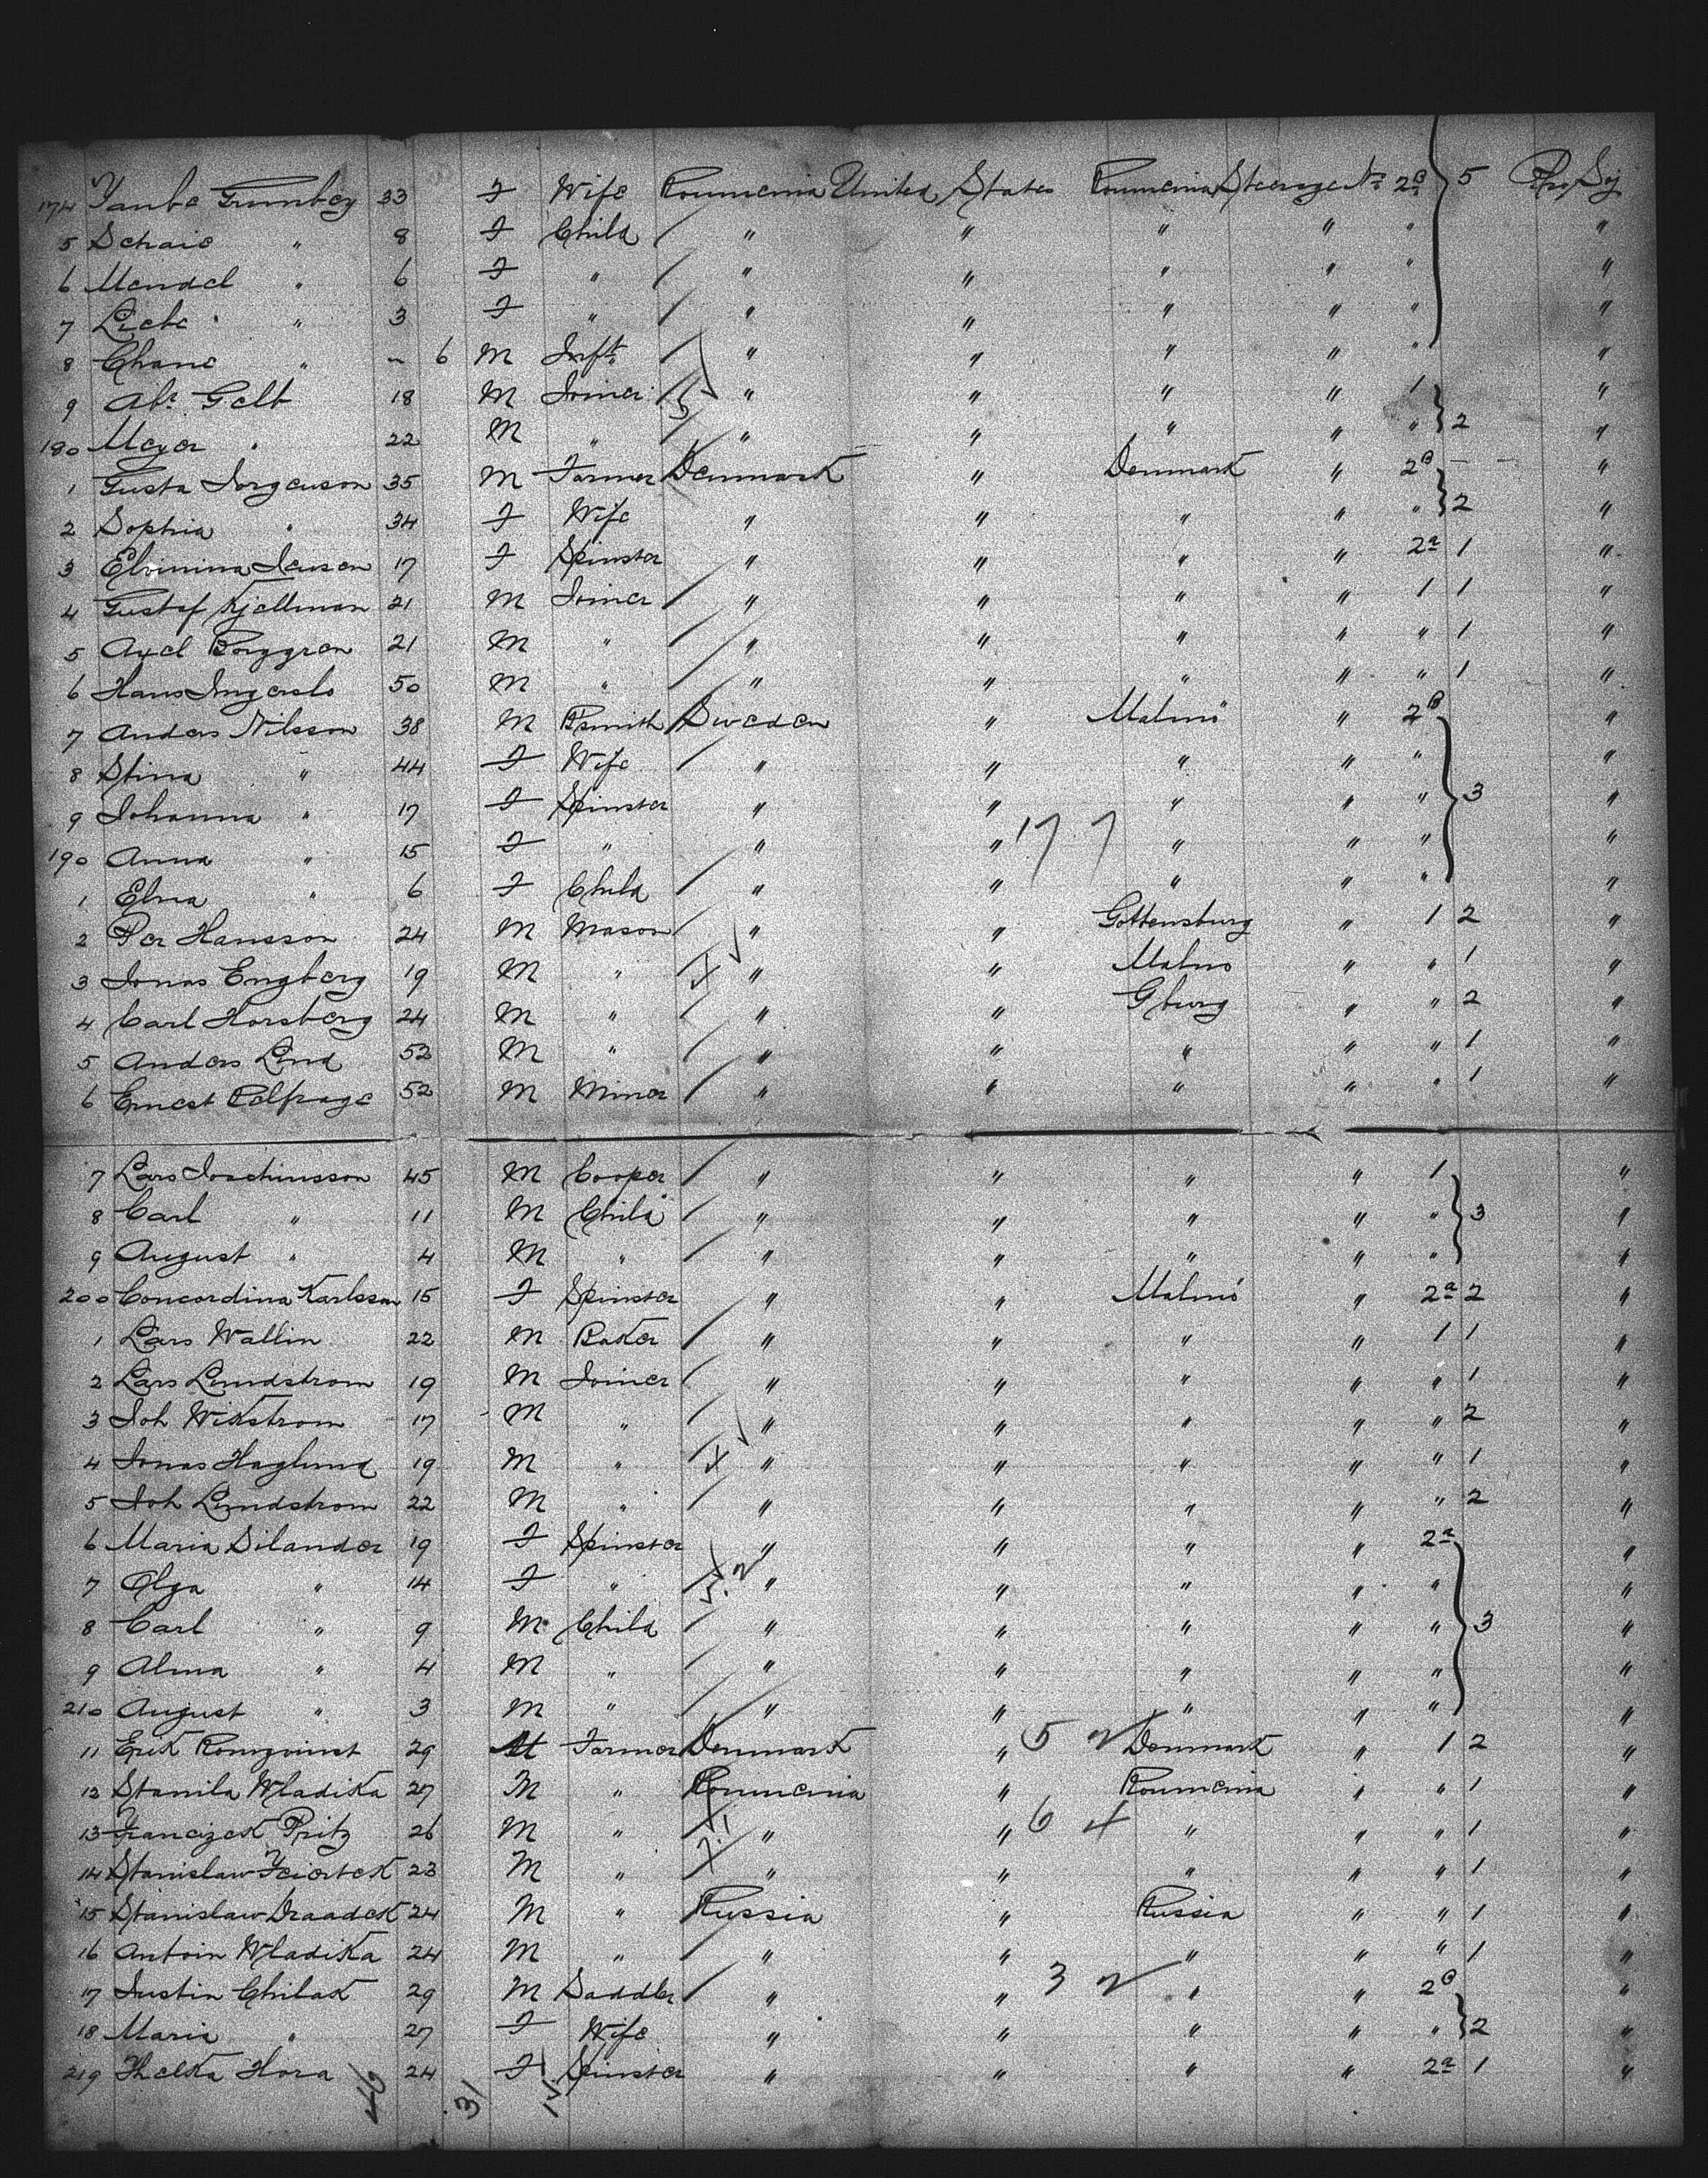 174 Taube Grunberg 33 F Wife Roumenia United States Roumenia Steerage No 2a 5 Pro Soj
5 Schaie " 8 F Child / " " " " " "
6 Mendel " 6 F " / " " " " " "
7 Liebe " 3 F " / " " " " " "
8 Chane " ~ 6 M Inft / " " " " " "
9 Abr. Gelb 18 M Joiner / " " " " 1 "
180 Meyer " 22 M " / " " " " " 2 "
1 Gusta Jorgenson 35 M Farmer Denmark " Denmark " 2B "
2 Sophia " 34 F Wife " " " " " 2 "
3 Elvinina Jensen 17 F Spinster " " " " 2a 1 "
4 Gustaf Kjellman 21 M Joiner / " " " " 1 1 "
5 Axel Borggren 21 M " / " " " " " 1 "
6 Hans Ingerslo 50 M " / " " " " " 1 "
7 Anders Nilsson 38 M Bsmith / Sweden " Malmö " 2B "
8 Stina " 44 F Wife / " " " " " "
9 Johanna " 17 F Spinster " " " " " 3 "
190 Anna " 15 F " " " 17 7 " " " "
1 Elna " 6 F Child / " " " " " "
2 Per Hansson 24 M Mason / " " Gottensburg " 1 2 "
3 Jonas Engberg 19 M " " " Malmo " " 1 "
4 Carl Horsberg 24 M " / " " Gburg " " 2 "
5 Anders Lind 52 M " / " " " " " 1 "
6 Ernest Belfrage 52 M Miner / " " " " " 1 "
7 Lars Joachinsson 45 M Cooper / " " " " 1 "
8 Carl " 11 M Child / " " " " " 3 "
9 August " 4 M " / " " " " " "
200 Concordina Karlsson 15 F Spinster " " Malmö " 2a 2 "
1 Lars Wallin 22 M Baker / " " " " 1 1 "
2 Lars Lundstrom 19 M Joiner / " " " " " 1 "
3 Joh Wikstrom 17 M " / " " " " " 2 "
4 Jonas Haglund 19 M " " " " " " 1 "
5 Joh Lundstrom 22 M " / " " " " " 2 "
6 Maria Silander 19 F Spinster " " " " 2a "
7 Olga " 14 F " " " " " " "
8 Carl " 9 M Child / " " " " " 3 "
9 Alma " 4 M " / " " " " " "
210 August " 3 M " / " " " " " "
11 Erik Romqvinst 29 M Farmer Denmark " 5 2 Denmark " 1 2 "
12 Stanila Wladika 27 M " Roumenia " Roumenia " " 1 "
13 Franczek Pritz 26 M " " " 6 4 " " " 1 "
14 Stanislaw 23 M " " " " " " 1 "
15 Stanislaw Draadek 24 M " Russia " Russia " " 1 "
16 Antoin Wladika 24 M " / " " " " " 1 "
17 Justin Chilak 29 M Saddler / " " 3 2 " " 2B "
18 Maria " 27 F Wife " " " " " 2 "
219 Thelka Hora 24 F Spinster " " " " 2a 1 "
46 31 15